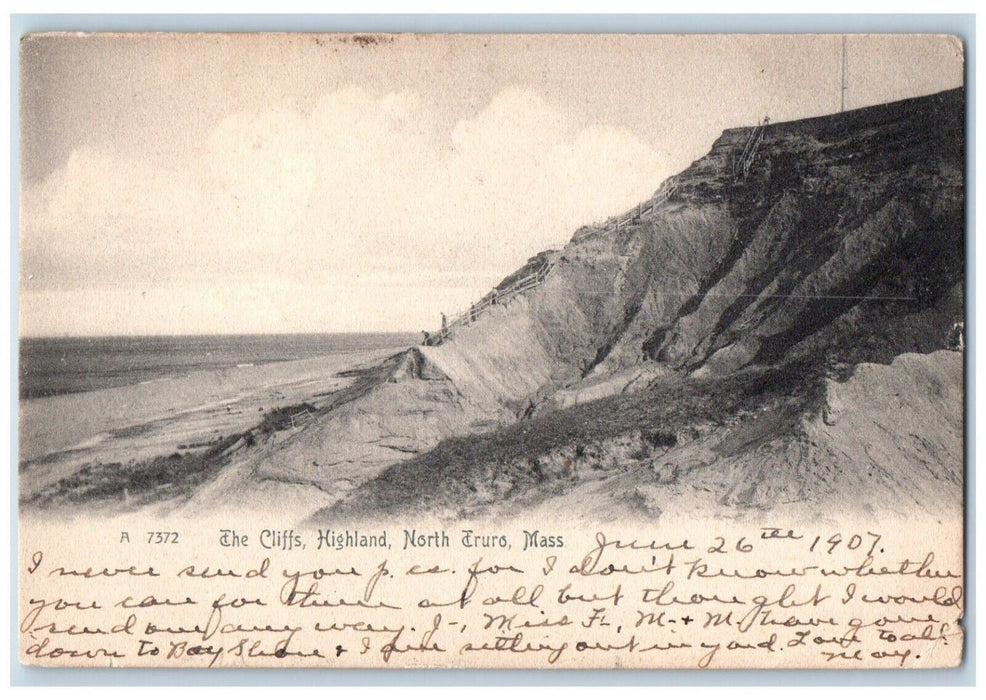 A 7372 The Cliffs, Highland, North Truro, Mass
June 26 1907.
I never send you p. cs. for I don't know whether
you care for them at all but thought I would
send one any way. J-, Miss F, M- + M. have gone
down to Bay Shore + I am sitting out in yard. Love to all
May.